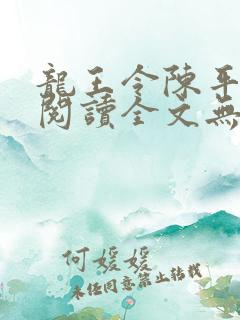 龍王令陳平
閱讀全文無
何媛媛
未經同意禁止轉載